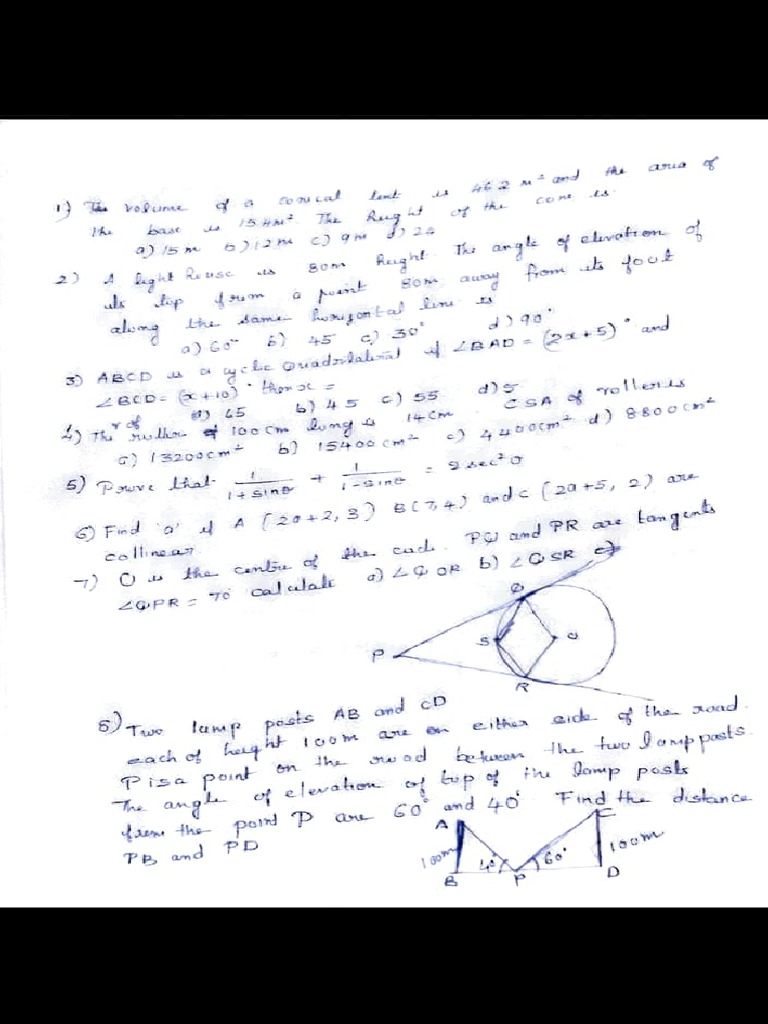 1) The volume of a conical tent is 462 m³ and the area of
the base is 154m². The height of the cone is.
a) 15m b) 12m c) 9m d) 24
2) A light house is 80m height. The angle of elevation of
its top from a point 80m away from its foot
along the same horizontal line is
a) 60° b) 45 c) 30° d) 90°
3) ABCD is a cyclic Quadrilateral if ∠BAD = (2x+5)° and
∠BCD = (x+10)° then x =
a) 65 b) 45 c) 55 d) 5
4) The r of roller 100cm long is 14cm CSA of roller is
a) 13200cm² b) 15400cm² c) 4400cm² d) 8800cm²
5) Prove that 1/(1+sinθ) + 1/(1-sinθ) = 2sec²θ
6) Find 'a' if A (2a+2, 3) B(7,4) and C (2a+5, 2) are
collinear
7) O is the centre of the circle. PQ and PR are tangents
∠QPR = 70° calculate a) ∠QOR b) ∠QSR c)
Q
S O
P
R
8) Two lamp posts AB and CD
each of height 100m are on either side of the road.
P is a point on the road between the two lamp posts.
The angle of elevation of top of the lamp posts
from the point P are 60° and 40° Find the distance
PB and PD
A C
100m 40° 60° 100m
B P D